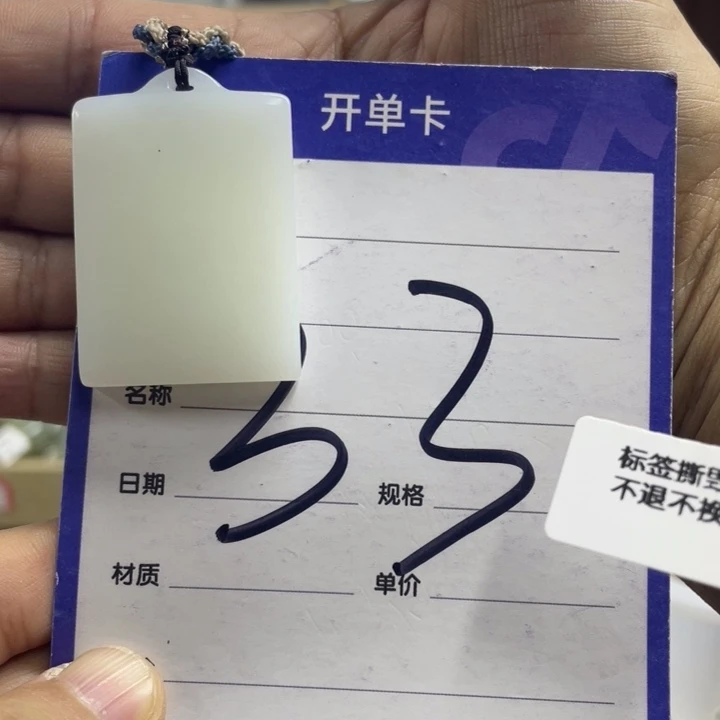 开单卡
33
名称
日期 规格
材质 单价
标签撕毁
不退不换